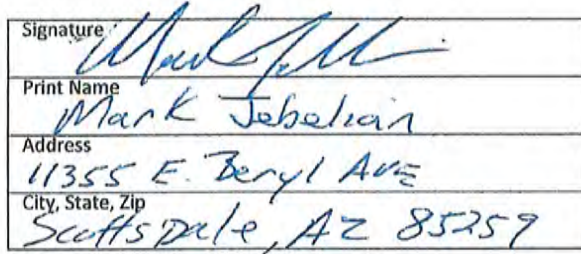 Signature
Print Name
Mark Jebelian
Address
11355 E. Beryl AVE
City, State, Zip
Scottsdale, AZ 85259